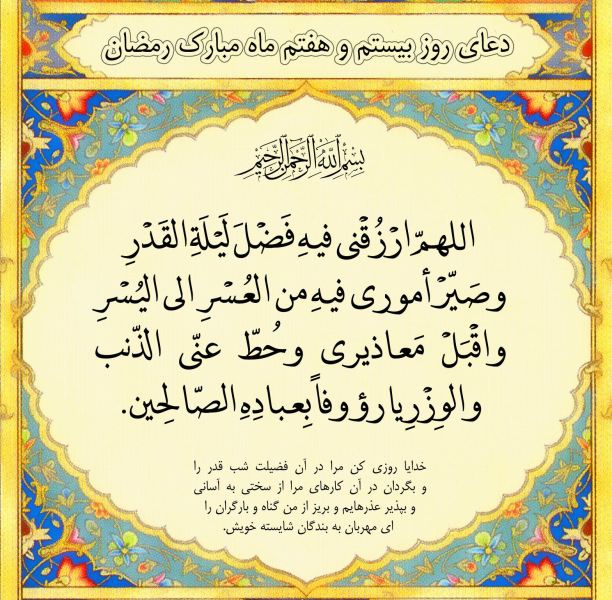 دعای روز بیستم و هفتم ماه مبارک رمضان
بسم الله الرحمن الرحیم
اللهمّ ارْزُقْنی فیهِ فَضْلَ لَیْلَةِ القَدْرِ
وصَیّرْ أموری فیهِ من العُسْرِ الی الیُسْرِ
واقْبَلْ مَعاذیری وحُطّ عنّی الذّنب
والوِزْرِ یا رؤوفاً بِعبادِهِ الصّالِحین.
خدایا روزی کن مرا در آن فضیلت شب قدر را
و بگردان در آن کارهای مرا از سختی به آسانی
و بپذیر عذرهایم و بریز از من گناه و بارگران را
ای مهربان به بندگان شایسته خویش.